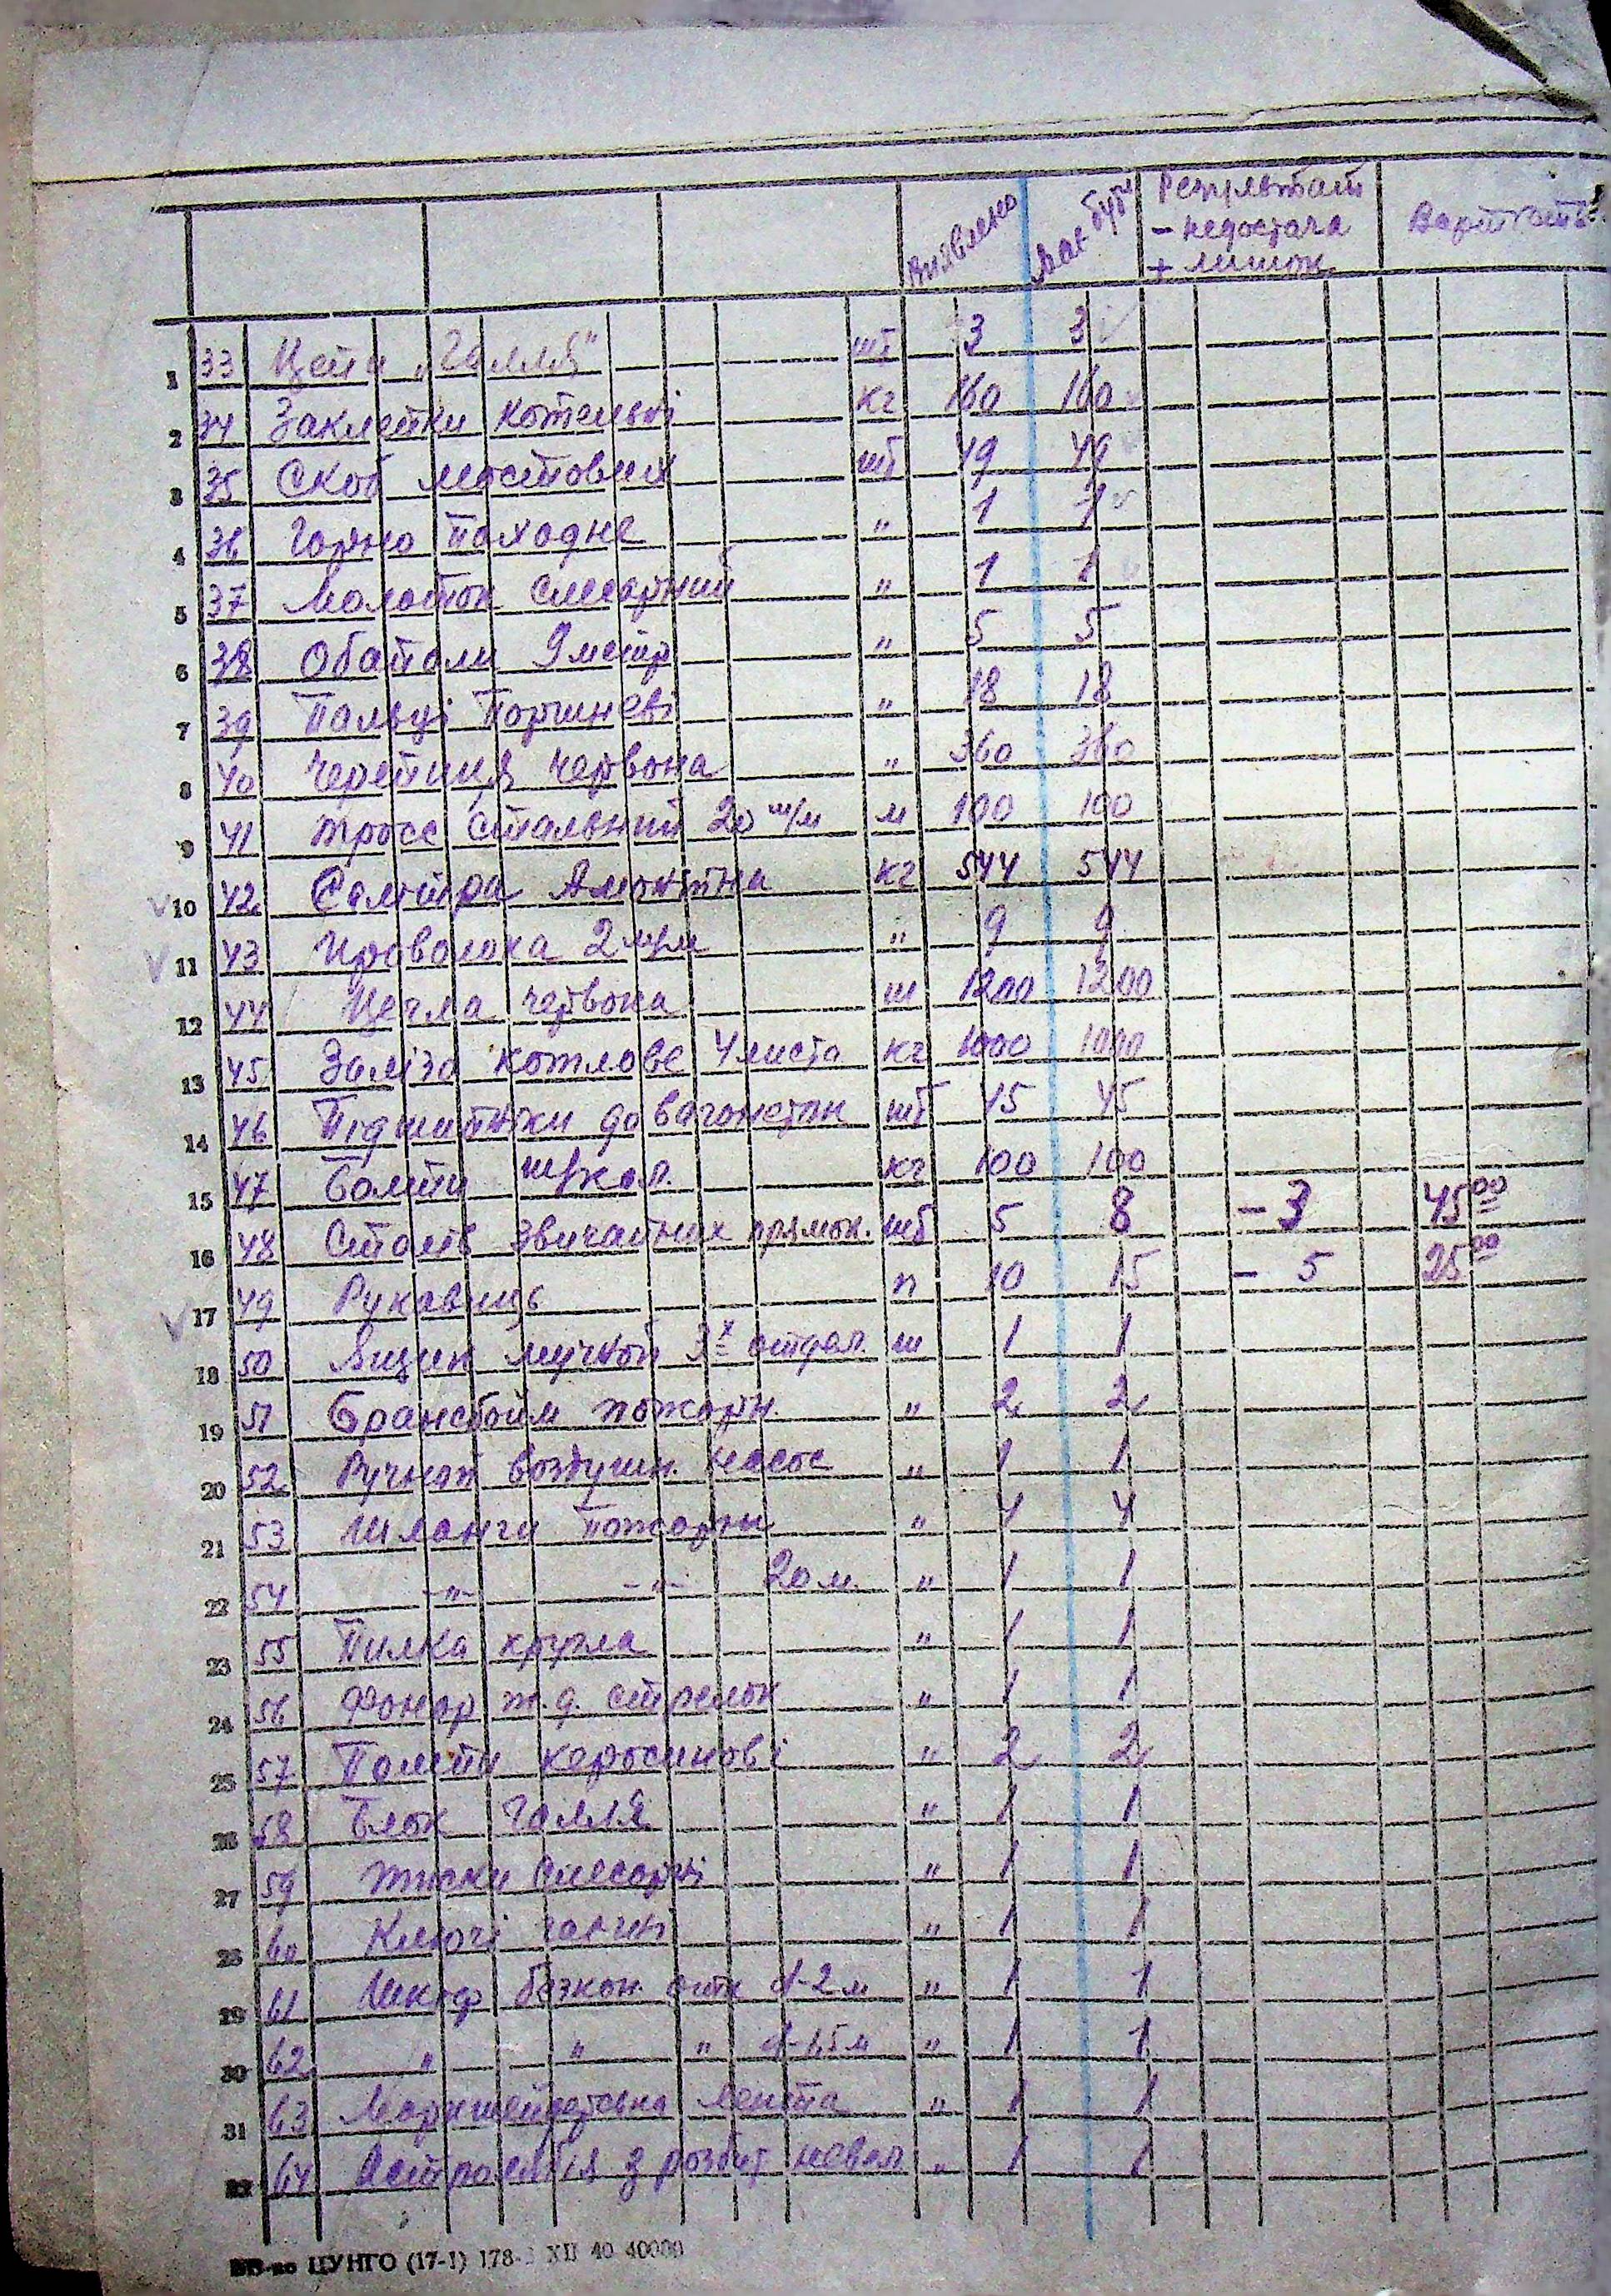 Виявлено Має бути Результат Вартість
- недостача
+ лишок
1 33 Цепи „Галля" шт 3 3
2 34 Заклепки котельні кг 160 160
3 35 Скоб мостових шт 49 49
4 36 Горно походне " 1 1
5 37 Молоток слесарний " 1 1
6 38 Обаполи 9 метр " 5 5
7 39 Пальці Поршневі " 18 18
8 40 Черепиця червона " 360 360
9 41 Тросс стальний 20 м/м м 100 100
10 42 Салітра Амонтна кг 544 544
11 43 Проволока 2 м/м " 9 9
12 44 Цегла червона ш 1200 1200
13 45 Залізо котлове 4 листа кг 1000 1000
14 46 Підшипники до вагонеток шт 45 45
15 47 Болти ш/кол. кг 100 100
16 48 Столів звичайних прямок. шт 5 8 - 3 45 00
17 49 Рукавиць п 10 15 - 5 25 00
18 50 Ящик мучной 3х отдел. ш 1 1
19 51 Брансбойм пожарн. " 2 2
20 52 Ручной воздушн. насос " 1 1
21 53 Шланги Пожарны " 4 4
22 54 -"- -"- 20 м. " 1 1
23 55 Пилка кругла " 1 1
24 56 Фонар ж.д. стрелок " 1 1
25 57 Полети керосинові " 2 2
26 58 Блок Галля " 1 1
27 59 Тиски Слесарні " 1 1
28 60 Ключі гаєчні " 1 1
29 61 Шкяф безкон. d-2 м " 1 1
30 62 " " " d-1,5 м " 1 1
31 63 Маркшейдерська лента " 1 1
32 64 Астролябія з розбит " 1 1
ВВ-во ЦУНГО (17-1) 178- XII 40 40000